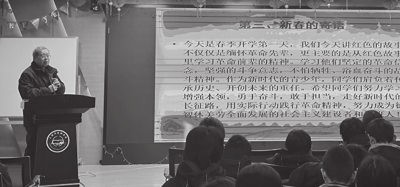 第三、新春的寄语
• 今天是春季开学第一天，我们今天讲红色的故事
不仅仅是缅怀革命先辈，更主要的是从红色故事
里学习革命前辈的精神，学习他们坚定的信
念，坚强的斗争意志，不怕牺牲、浴血奋斗的
斗精神。作为新时代的青少年，同学们肩负着
承历史、开创未来的重任。希望同学们努力学
增强本领，勇于奋斗，敢于担当，走好新时代的
长征路，用实际行动践行革命精神，努力成为德
智体美劳全面发展的社会主义建设者和